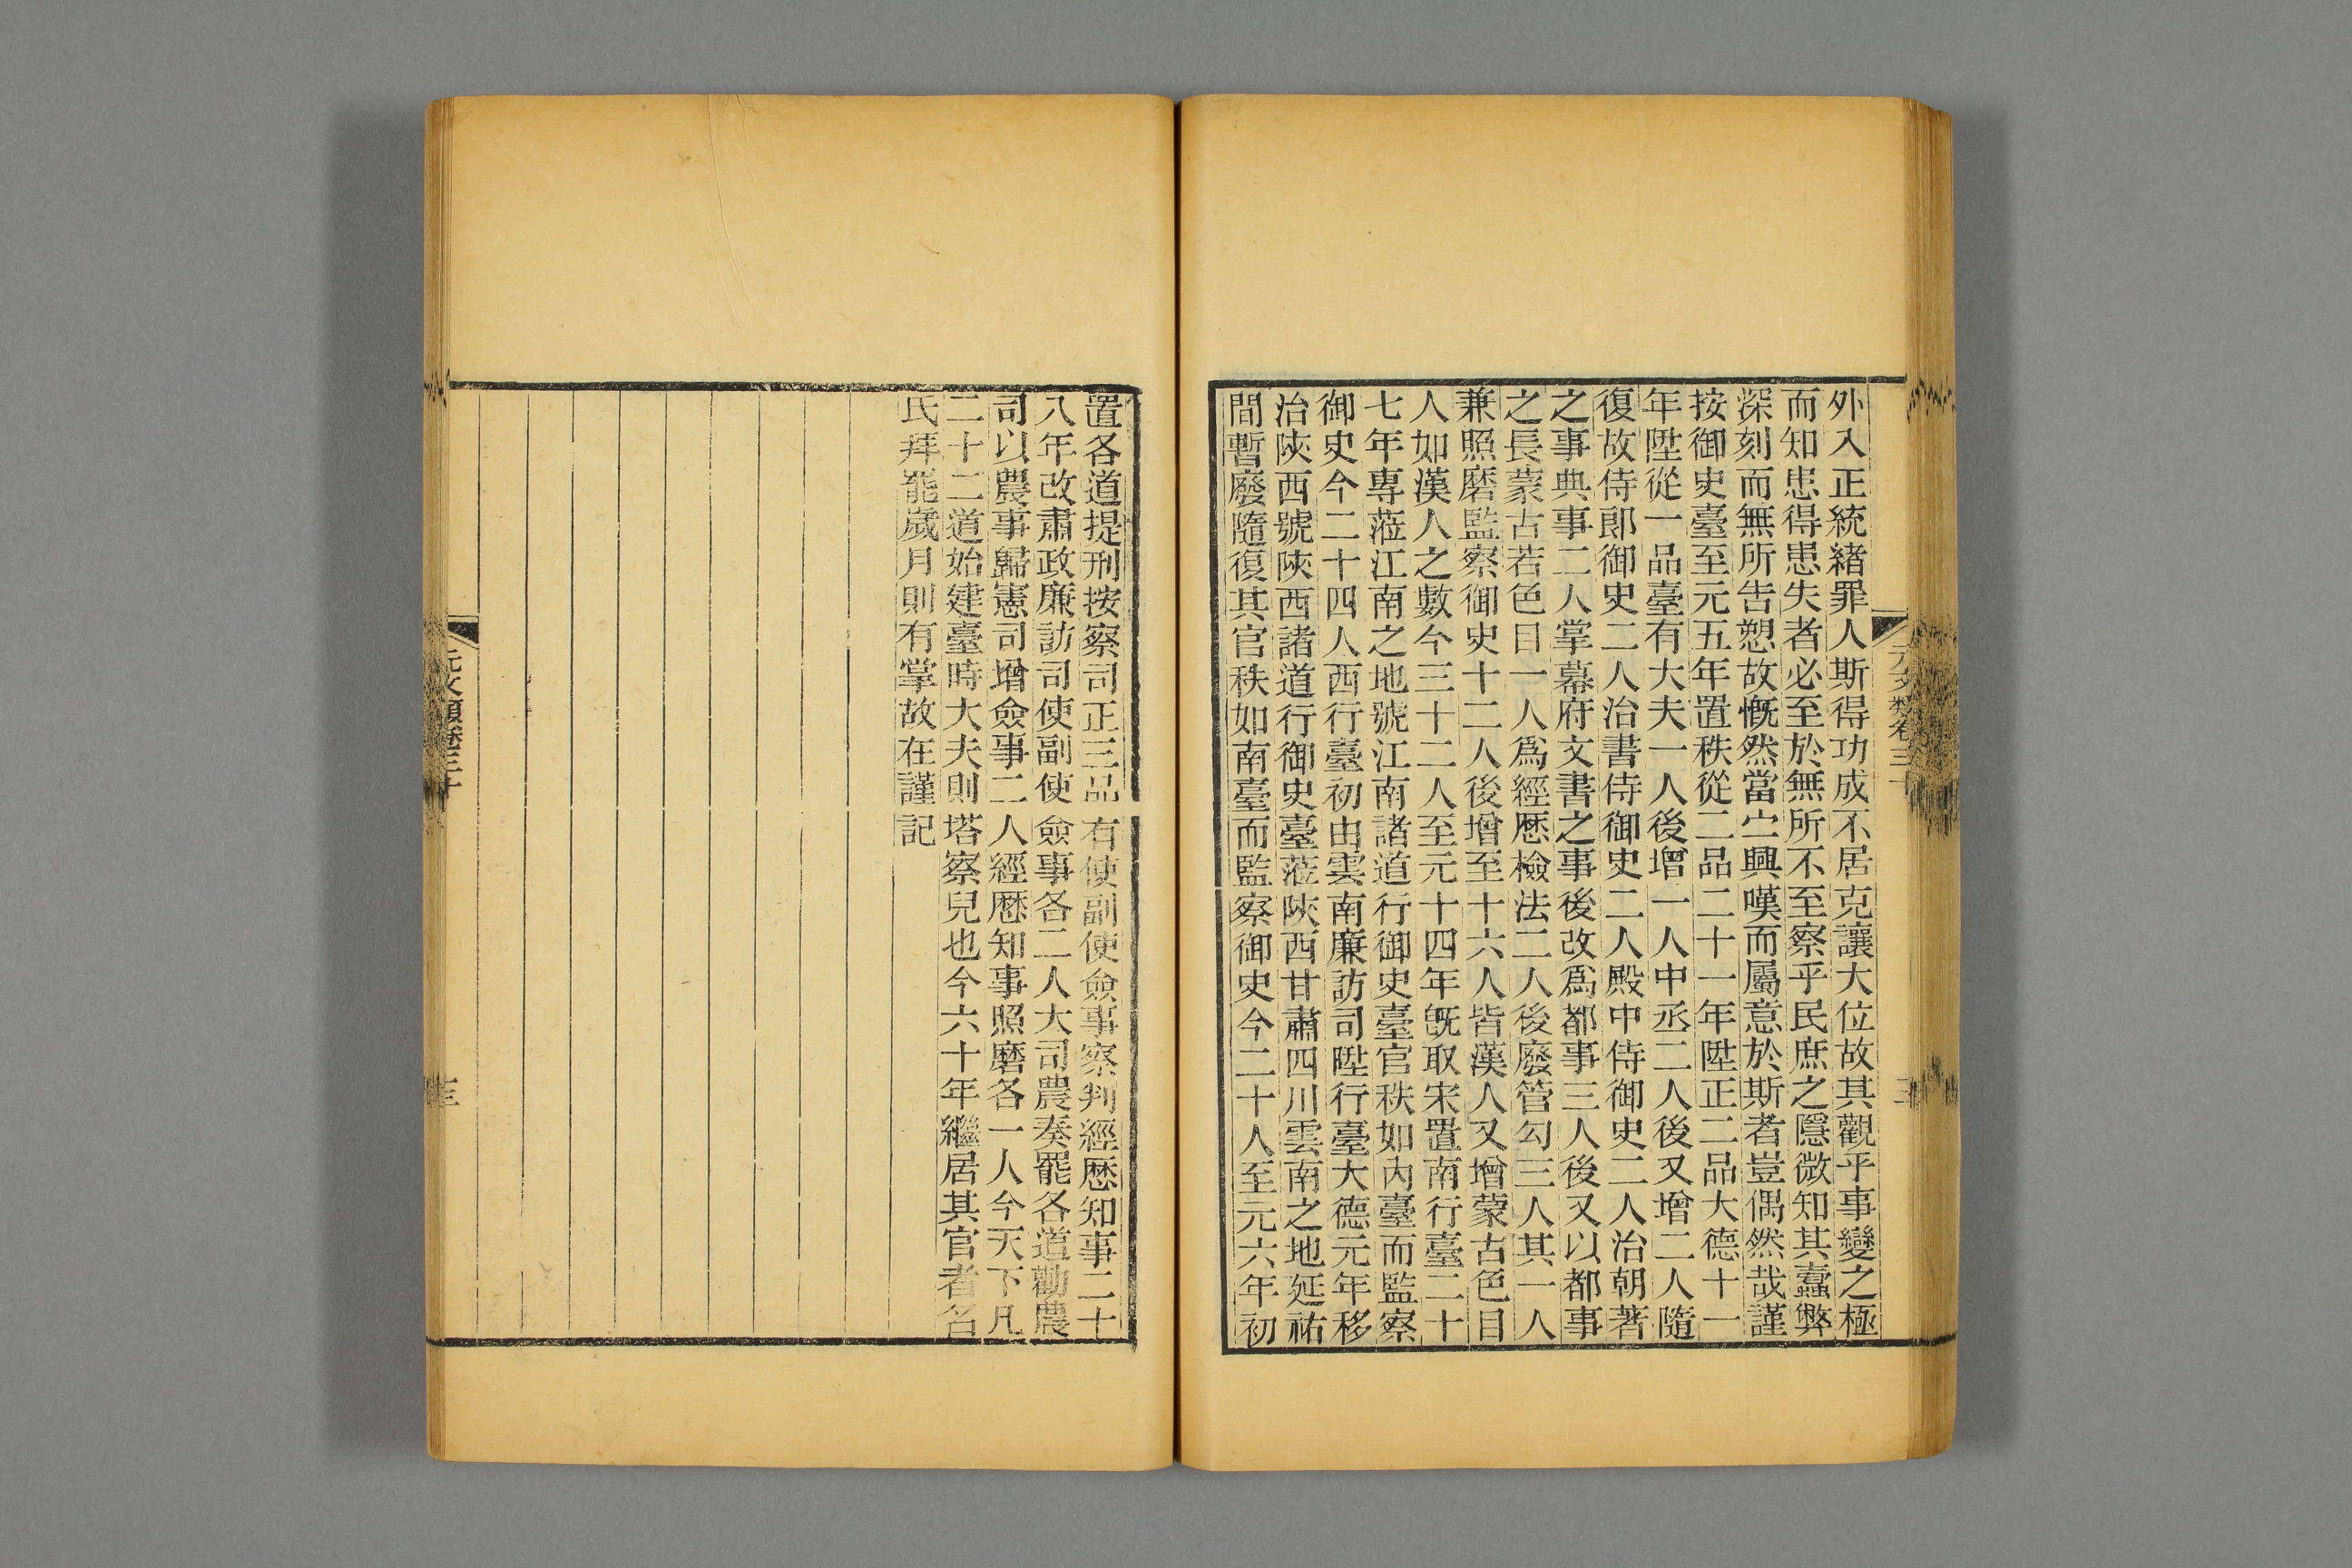 外入正統緖罪人斯得功成不居克讓大位故其觀乎事變之極
而知患得患失者必至於無所不至察乎民庶之隱微知其蠹弊
深刻而無所告愬故慨然當宁興嘆而屬意於斯者豈偶然哉謹
按御史臺至元五年置秩從二品二十一年陞正二品大德十一
年陞從一品臺有大夫一人後增一人中丞二人後又增二人隨
復故侍郎御史二人治書侍御史二人殿中侍御史二人治朝著
之事典事二人掌幕府文書之事後改爲都事三人後又以都事
之長蒙古若色目一人爲經歷檢法二人後廢管勾三人其一人
兼照磨監察御史十二人後增至十六人皆漢人又增蒙古色目
人如漢人之數今三十二人至元十四年旣取宋置南行臺二十
七年專蒞江南之地號江南諸道行御史臺官秩如內臺而監察
御史今二十四人西行臺初由雲南廉訪司陞行臺大德元年移
治陝西號陝西諸道行御史臺蒞陝西甘肅四川雲南之地延祐
間暫廢隨復其官秩如南臺而監察御史今二十人至元六年初
元文類卷三十
置各道提刑按察司正三品有使副使僉事察判經歷知事二十
八年改肅政廉訪司使副使僉事各二人大司農奏罷各道勸農
司以農事歸憲司增僉事二人經歷知事照磨各一人今天下凡
二十二道始建臺時大夫則塔察兒也今六十年繼居其官者名
氏拜罷歲月則有掌故在謹記